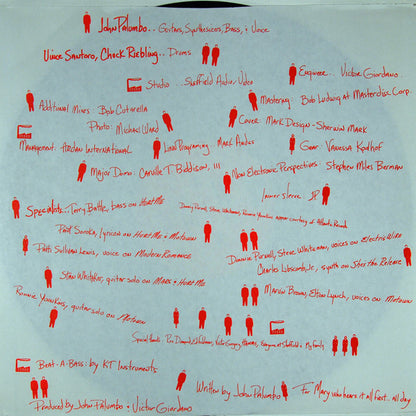 John Palumbo.. Guitars, Synthesizers, Bass, & Voice
Vince Santoro, Chuck Riebling.. Drums
Engineer.. Victor Giordano
Studio.. Sheffield Audio/Video
Mastering.. Bob Ludwig at Masterdisc Corp.
Additional Mixes: Bob Cotarella
Cover: Mark Design - Sherwin Mark
Photo: Michael Ward
Management: Horizon International
Linn Programing.. Mark Andes
Gear: Vanessa Kpolhof
Major Domo: Carville T. Biddison, III
New Electronic Perspectives: Stephen Miles Berman
Inner Sleeve: JP
Specialists.. Terry Battle, bass on Hurt Me
Danny Purnell, Steve Whiteman, Ronnie Younkins appear courtesy of Atlantic Records
Pratt Suroka, lyricon on Hurt Me & Motown
Patti Sullivan Lewis, voice on Modern Romance
Donnie Purnell, Steve Whiteman, voices on Electric Wire
Charles Libscomb, Jr., synth on Stop the Release
Stan Whitaker, guitar solo on Mars & Hurt Me
Marlow Brown, Elton Lynch, voices on Motown
Ronnie Younkins, guitar solo on Motown
Special thanks:
Everyone at Sheffield & My family
Beat-A-Bass: by KT Instruments
Written by John Palumbo
For Mary who hears it all first.. all day
Produced by John Palumbo & Victor Giordano